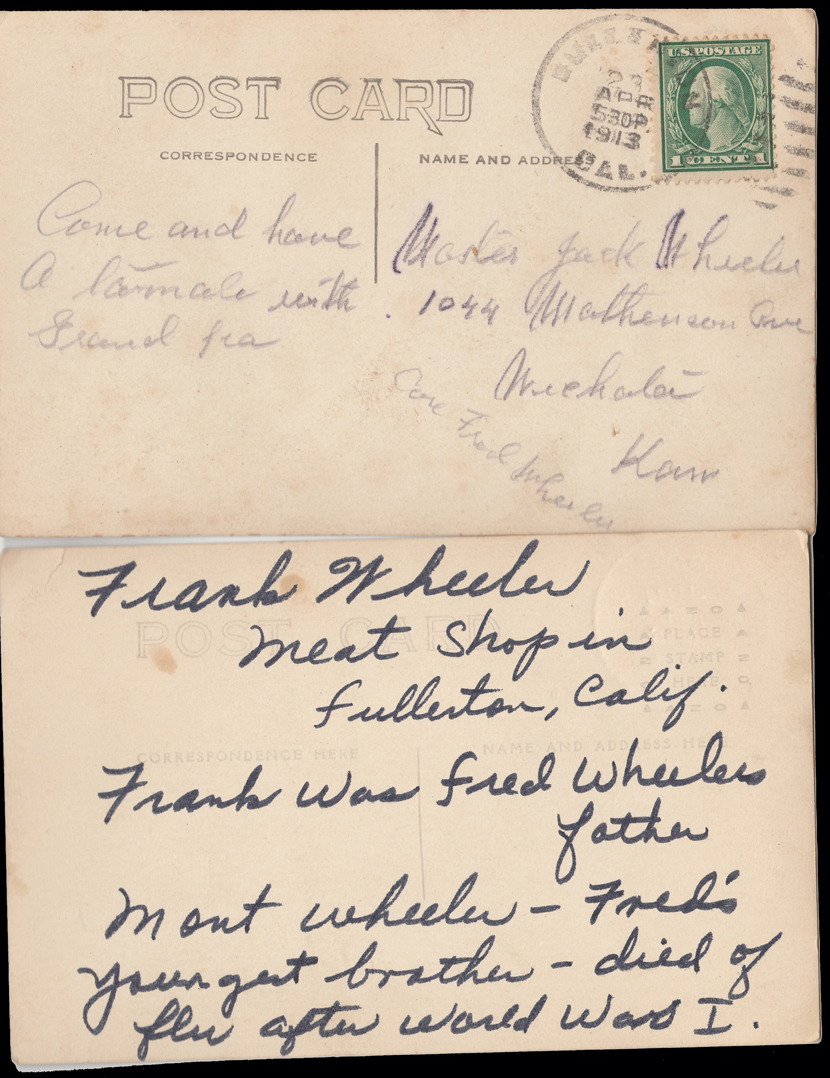 POST CARD
CORRESPONDENCE
NAME AND ADDRESS
23
APR
530P
1913
CAL.
U.S. POSTAGE
1 CENT 1
Come and have
A tamale with
Grand pa
Master Jack Wheeler
1044 Mathewson Ave
Wichita
Kans
Care Fred Wheeler
Frank Wheeler
Meat Shop in
Fullerton, Calif.
Frank was Fred Wheelers
father
Mont Wheeler - Fred's
youngest brother - died of
flu after World War I.
POST CARD
PLACE
STAMP
HERE
CORRESPONDENCE HERE
NAME AND ADDRESS HERE